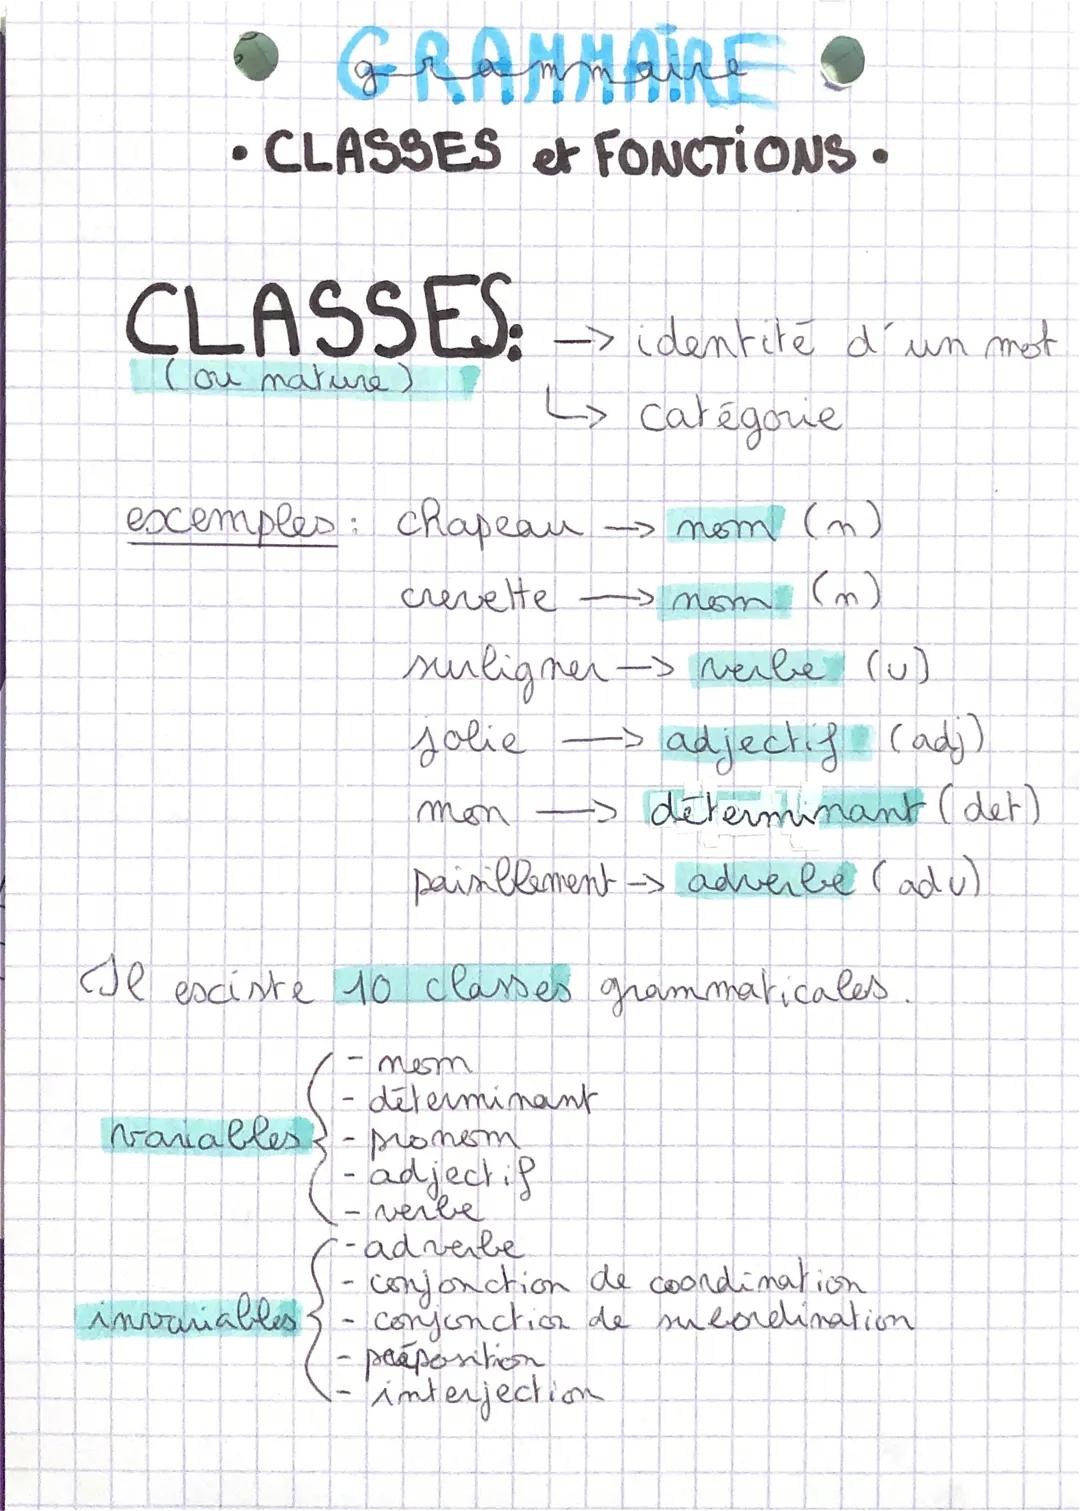 GRAMMAIRE
grammaire
• CLASSES et FONCTIONS •
CLASSES: -> identité d'un mot
(ou nature)
↳ catégorie
exemples : chapeau -> nom (n)
crevette -> nom (n)
surligner -> verbe (v)
jolie -> adjectif (adj)
mon -> déterminant (det)
paisiblement -> adverbe (adv)
Il existe 10 classes grammaticales.
- nom
- déterminant
variables { - pronom
- adjectif
- verbe
- adverbe
- conjonction de coordination
invariables { - conjonction de subordination
- préposition
- interjection